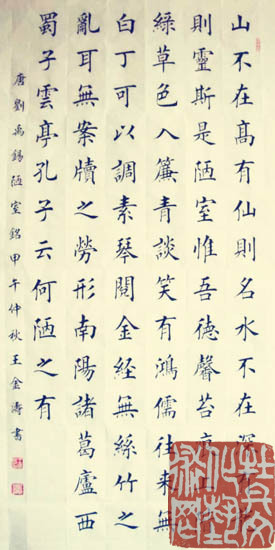 山不在高有仙則名水不在
則靈斯是陋室惟吾德馨苔
綠草色入簾青談笑有鴻儒往來無
白丁可以調素琴閱金經無絲竹之
亂耳無案牘之勞形南陽諸葛廬西
蜀子雲亭孔子云何陋之有
唐劉禹錫陋室銘甲午仲秋王金濤書